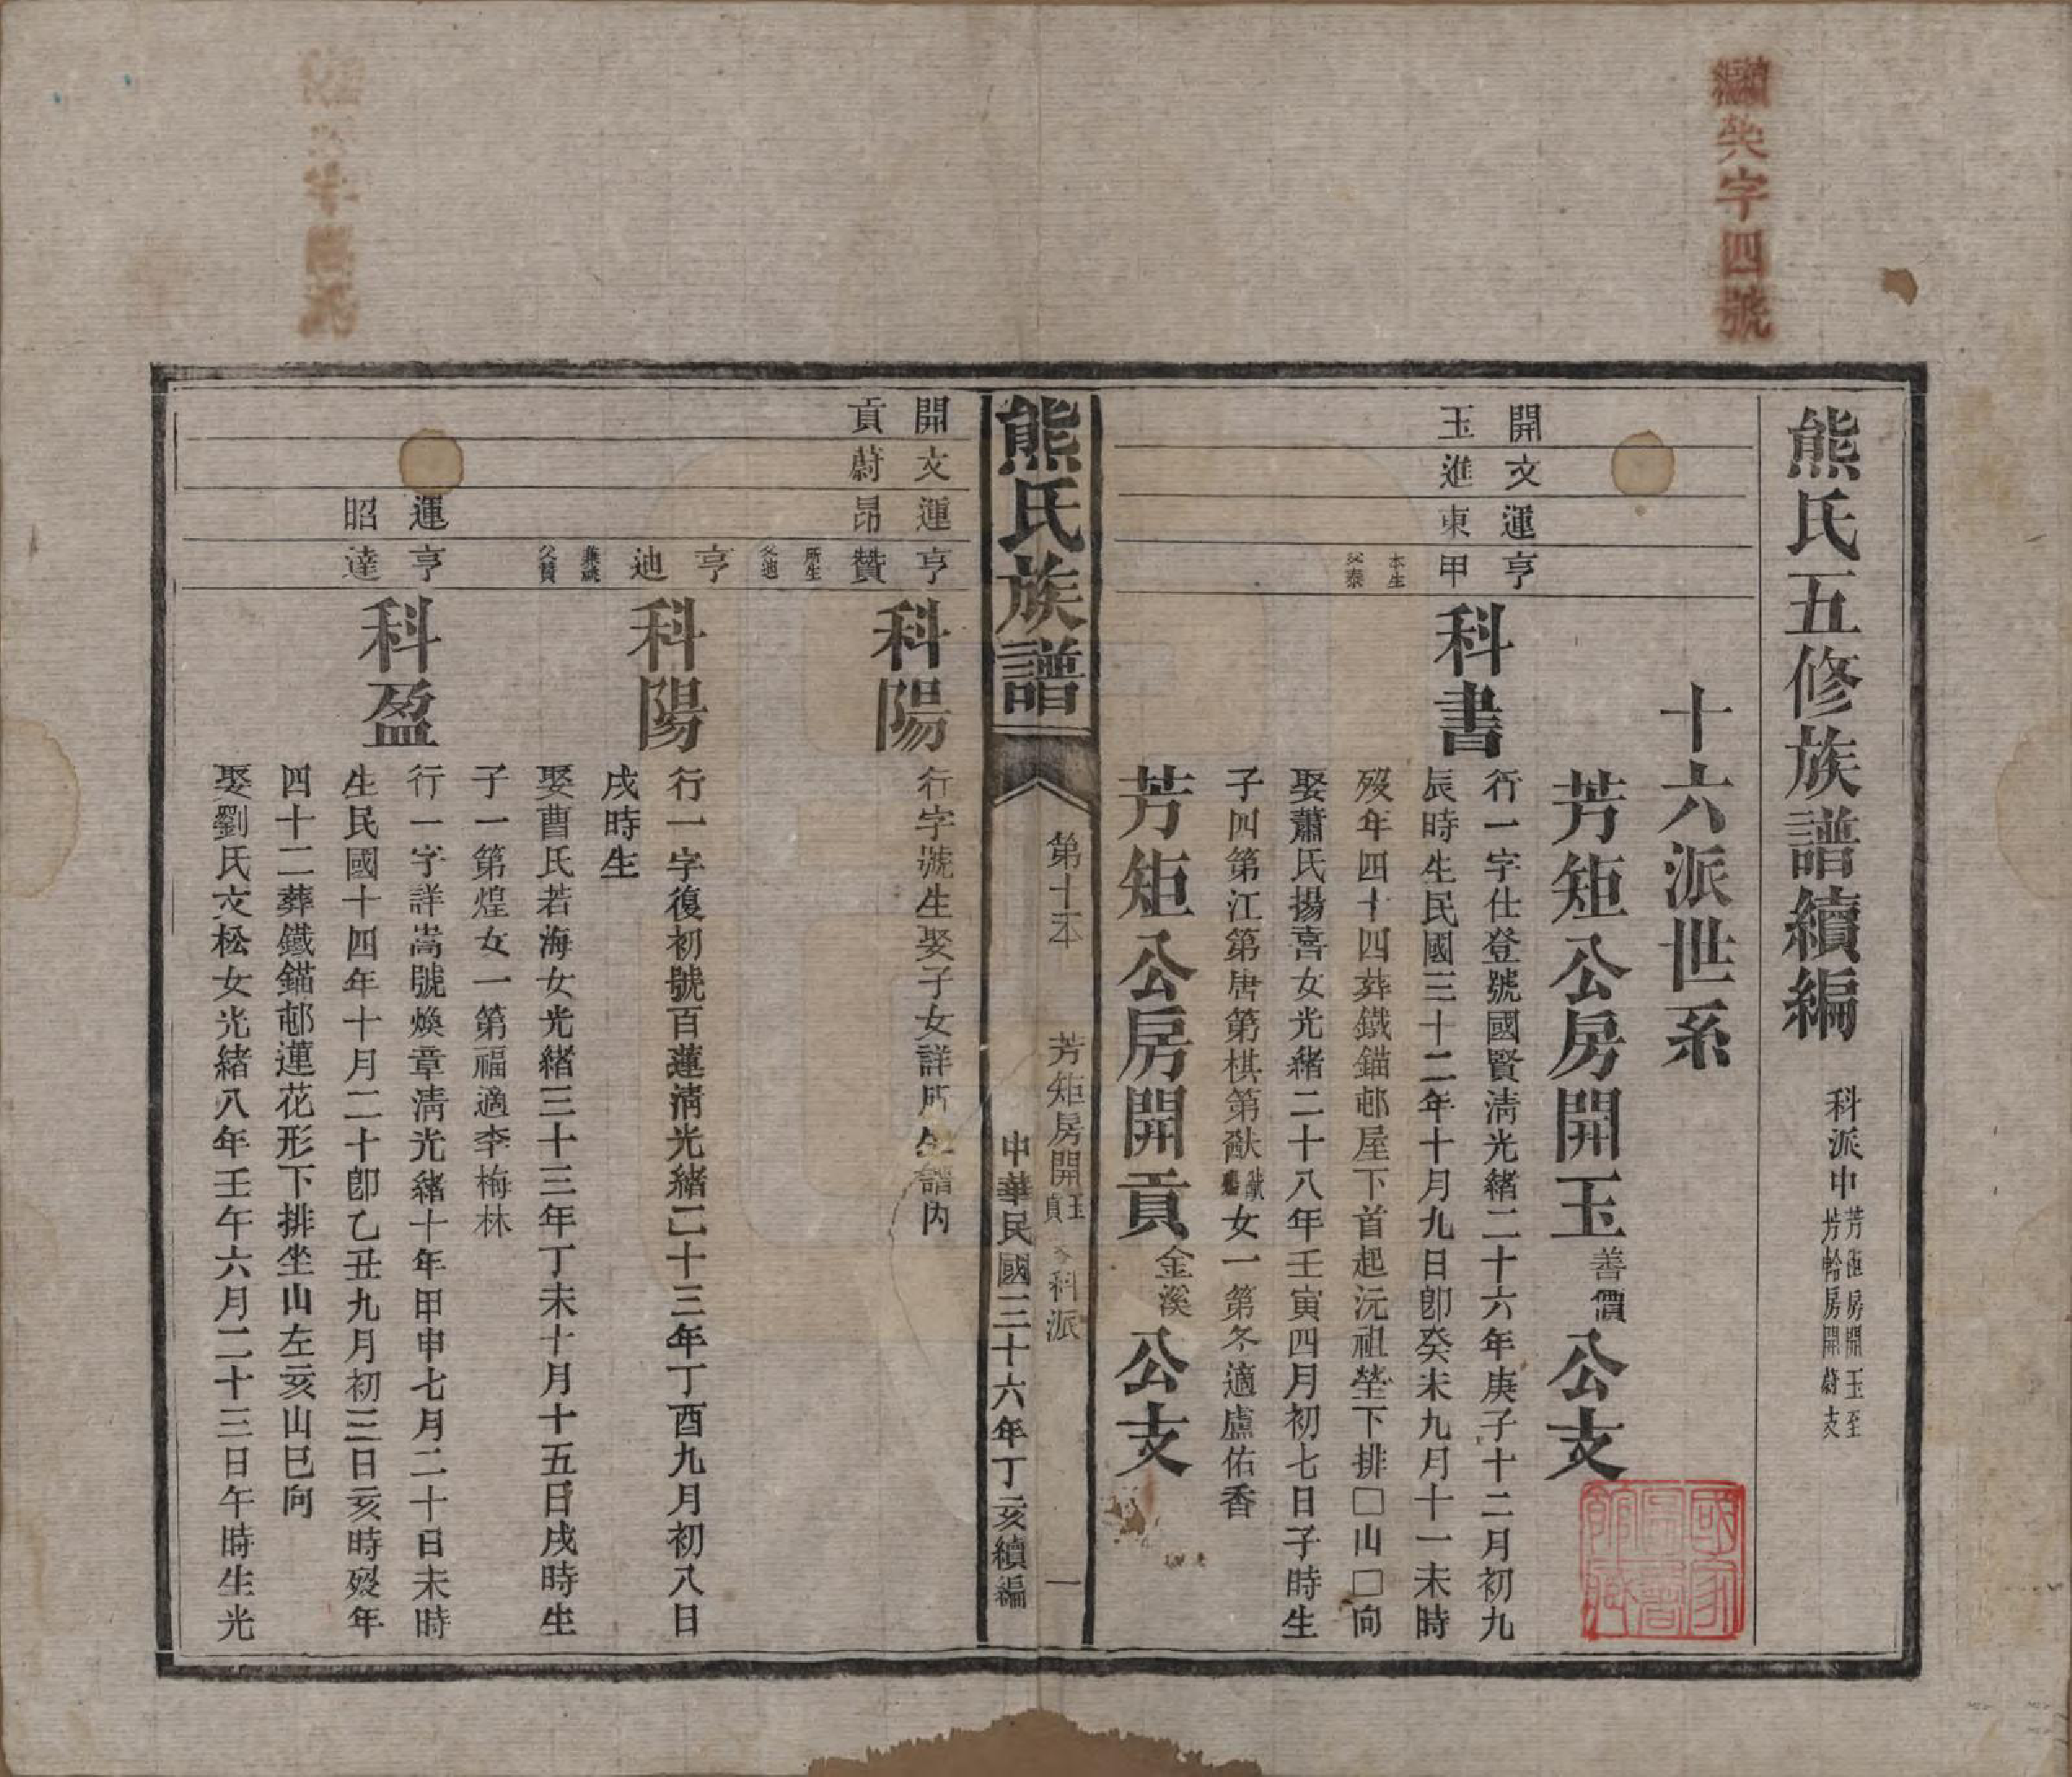 續英字四號
熊氏五修族譜續編
科派中
芳矩房開玉至
芳軫房開蔚支
十六派世系
芳矩公房開玉善價公支
開玉
文進
運東
亨甲
本生
父泰
科書
行一字仕登號國賢淸光緒二十六年庚子十二月初九
辰時生民國三十二年十月九日卽癸未九月十一未時
歿年四十四葬鐵錨邨屋下首起沅祖塋下排□山□向
娶蕭氏揚喜女光緒二十八年壬寅四月初七日子時生
子四第江第唐第棋第猷
女一第冬適盧佑香
芳矩公房開貢金溪公支
熊氏族譜
第十本
芳矩房開玉貢公科派
一
中華民國三十六年丁亥續編
開貢
文蔚
運昂
亨贊
所生
父迪
科陽
行字號生娶子女詳所生譜內
亨迪
兼祧
父贊
科陽
行一字復初號百蓮淸光緒二十三年丁酉九月初八日
戌時生
娶曹氏若海女光緒三十三年丁未十月十五日戌時生
子一第煌女一第福適李梅林
運昭
亨達
科盈
行一字詳嵩號煥章淸光緒十年甲申七月二十日未時
生民國十四年十月二十卽乙丑九月初三日亥時歿年
四十二葬鐵錨邨蓮花形下排坐山左亥山巳向
娶劉氏文松女光緒八年壬午六月二十三日午時生光